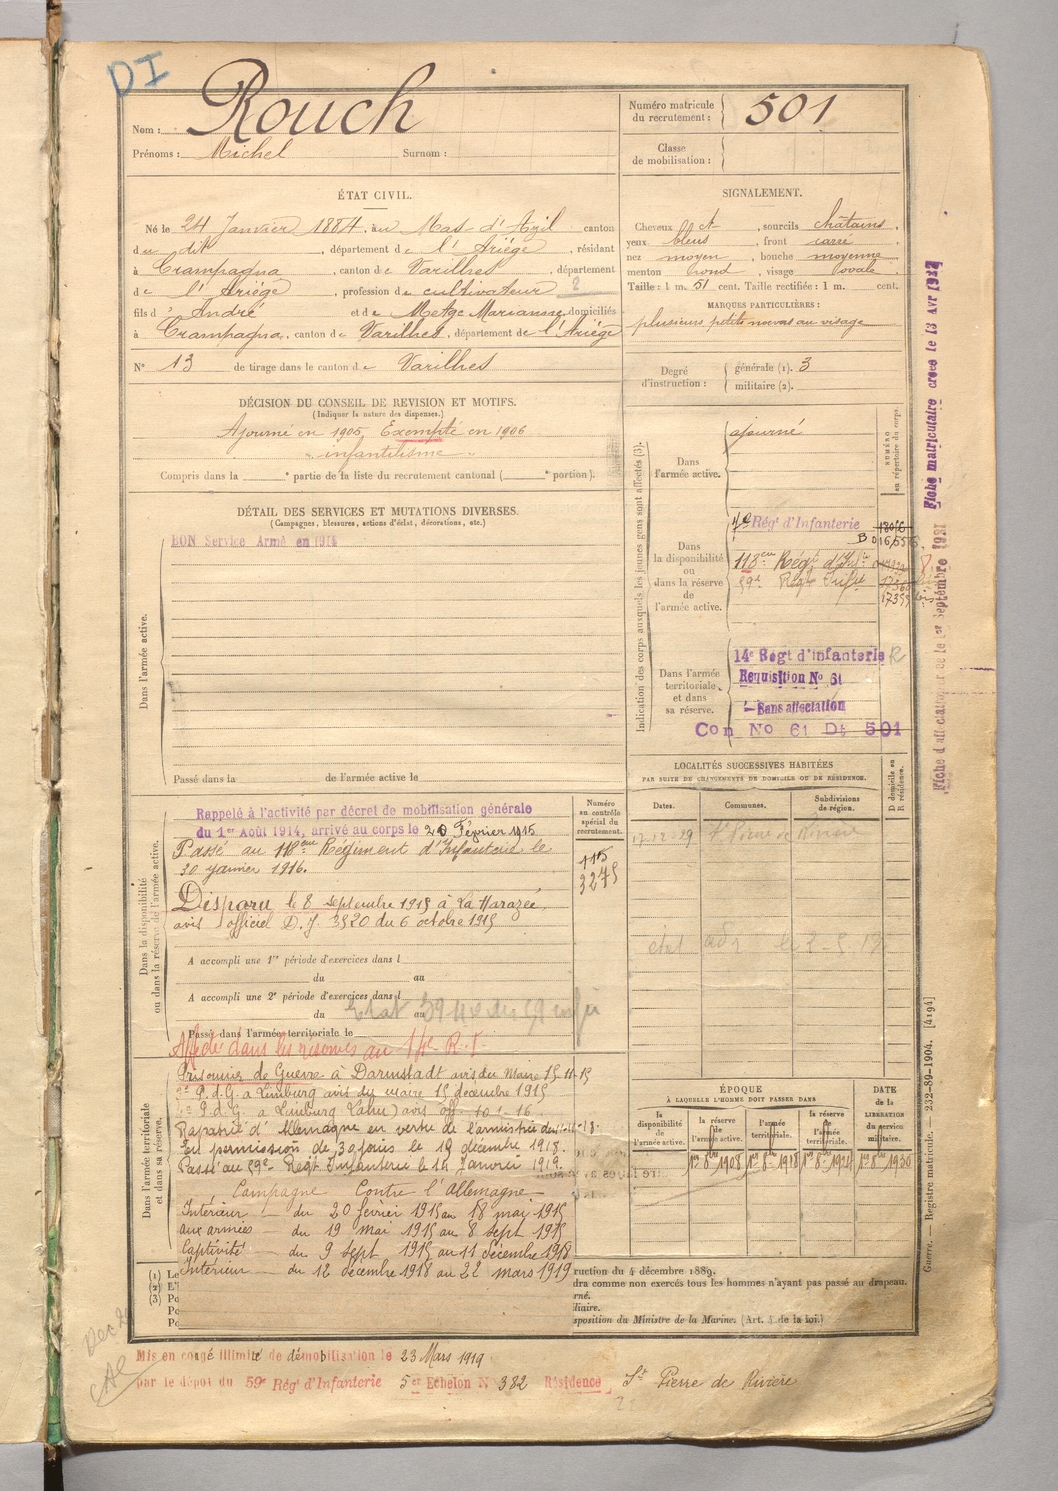 DI
Nom : Rouch
Prénoms : Michel Surnom :
Numéro matricule du recrutement : 501
Classe de mobilisation :
ÉTAT CIVIL.
Né le 24 Janvier 1884, au Mas d'Azil canton
du dit, département de l'Ariège, résidant
à Crampagna, canton de Varilhes, département
de l'Ariège, profession de cultivateur 2
fils d' André et de Metge Marianne domiciliés
à Crampagna, canton de Varilhes, département de l'Ariège
N° 13 de tirage dans le canton de Varilhes
SIGNALEMENT.
Cheveux et, sourcils châtains,
yeux bleus, front carré,
nez moyen, bouche moyenne
menton rond, visage ovale
Taille : 1 m. 51 cent. Taille rectifiée : 1 m. cent.
MARQUES PARTICULIÈRES :
plusieurs petits noevus au visage
Degré d'instruction : générale (1). 3
militaire (2).
DÉCISION DU CONSEIL DE REVISION ET MOTIFS.
(Indiquer la nature des dispenses.)
Ajourné en 1905, Exempté en 1906
infantilisme
Compris dans la ° partie de la liste du recrutement cantonal ( ° portion).
DÉTAIL DES SERVICES ET MUTATIONS DIVERSES.
(Campagnes, blessures, actions d'éclat, décorations, etc.)
BON Service Armé en 1914
Dans l'armée active.
Passé dans la de l'armée active le
Indication des corps auxquels les jeunes gens sont affectés (3).
NUMÉRO au répertoire du corps.
Dans l'armée active.
ajourné
Dans la disponibilité ou dans la réserve de l'armée active.
Rég' d'Infanterie
113eme Régt d'Infie
59e Régt Infie
Dans l'armée territoriale et dans sa réserve.
14e Régt d'Infanterie R
Requisition No 61
Sans affectation
Con No 61 Dt 501
LOCALITÉS SUCCESSIVES HABITÉES
PAR SUITE DE CHANGEMENTS DE DOMICILE OU DE RÉSIDENCE.
Dates. Communes. Subdivisions de région. D domicile ou R résidence.
17-12-29 St Pierre de Rivière
Dans la disponibilité ou dans la réserve de l'armée active.
Numéro au contrôle spécial du recrutement.
115
3275
Rappelé à l'activité par décret de mobilisation générale
du 1er Août 1914, arrivé au corps le 20 Février 1915
Passé au 113eme Régiment d'Infanterie le
30 janvier 1916.
Disparu le 8 septembre 1915 à La Harazée,
avis officiel D. J. 3520 du 6 octobre 1915
A accompli une 1re période d'exercices dans l
du au
A accompli une 2e période d'exercices dans l
du au
Passé dans l'armée territoriale le
Affecté dans les réserves au 14e R. I.
Dans l'armée territoriale et dans sa réserve.
Prisonnier de Guerre à Darmstadt avis du Maire 15-11-15
P. d. G. à Limburg avis du maire 15 décembre 1915
P. d. G. à Limburg Lahn) avis off. 10-1-16
Rapatrié d'Allemagne en vertu de l'armistice du 11-11-18.
En permission de 30 jours le 19 décembre 1918.
Passé au 59e Régt Infanterie le 20 Janvier 1919.
Campagne Contre l'Allemagne
Intérieur du 20 février 1915 au 18 mai 1915
aux armées du 19 mai 1915 au 8 sept 1915
Captivité du 9 sept 1915 au 11 décembre 1918
Intérieur du 12 décembre 1918 au 22 mars 1919
ÉPOQUE
À LAQUELLE L'HOMME DOIT PASSER DANS
la disponibilité de l'armée active. la réserve de l'armée active. l'armée territoriale. la réserve de l'armée territoriale.
DATE de la LIBÉRATION du service militaire.
1er 8bre 1908 1er 8bre 1918 1er 8bre 1924 1er 8bre 1930
(1) Le
(2) E
(3) Po
Po
Po
ruction du 4 décembre 1889.
dra comme non exercés tous les hommes n'ayant pas passé au drapeau.
rné.
liaire.
sposition du Ministre de la Marine. (Art. 4 de la loi.)
Mis en congé illimité de démobilisation le 23 Mars 1919
par le dépôt du 59e Rég' d'Infanterie 5e Echelon N° 382 Résidence St Pierre de Rivière
Fiche matriculaire créée le 13 Avr 1937
Fiche d'affectation créée le 1er Septembre 1931
Guerre. — Registre matricule. — 232-89-1904. [4194]